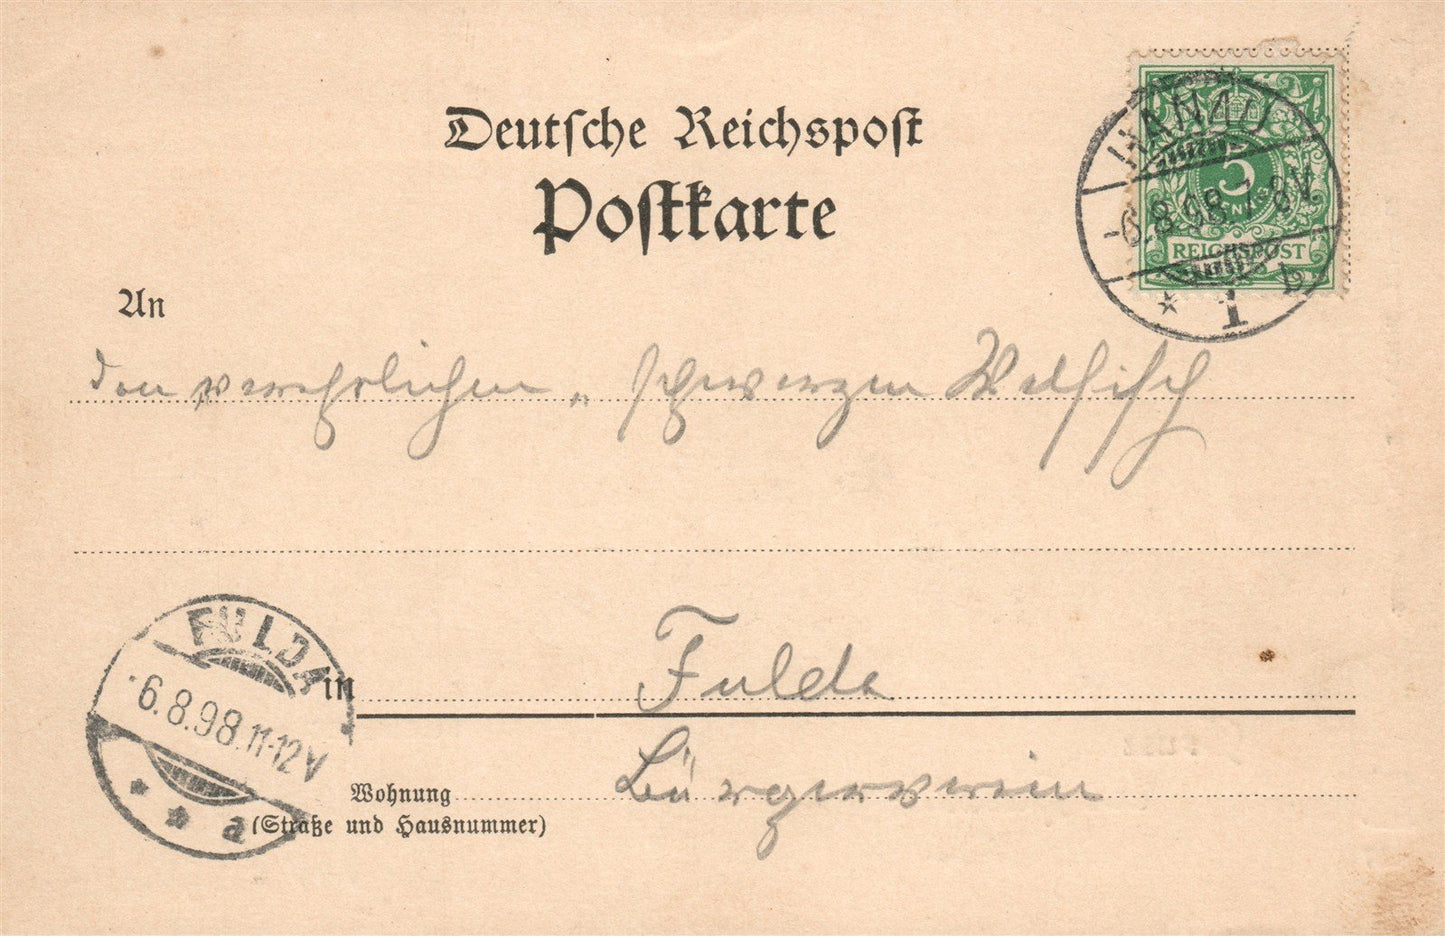 Deutsche Reichspost
Postkarte
HANAU
-6.8.98.7-8V.
* 1 b
5
REICHSPOST
An
den verehrlichen „ schwarzen Walfisch
FULDA
-6.8.98.11-12V
* * a
in Fulda
Wohnung Bürgerverein
(Straße und Hausnummer)